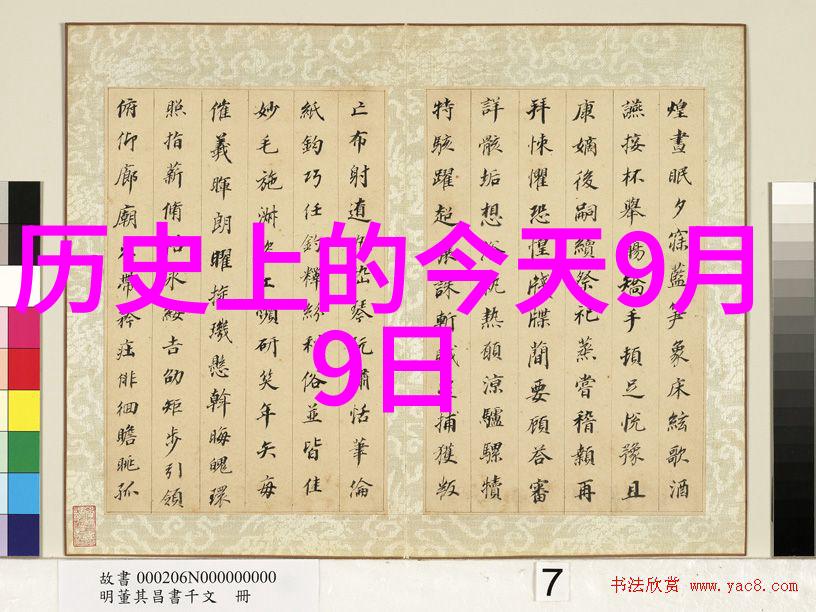 历史上的今天9月
9日
煌晝眠夕寐藍笋象床絃歌酒
讌接杯舉觴矯手頓足悅豫且
康嫡後嗣續祭祀蒸嘗稽顙再
拜悚懼恐惶牋牒簡要顧答審
詳骸垢想浴執熱願涼驢騾犢
特駭躍超誅斬捕獲叛
亡布射遼琴阮嘯恬筆倫
紙鈞巧任釣釋紛利俗並皆佳
妙毛施淑姿工嚬妍笑年矢每
催羲暉朗曜旋璣懸斡晦魄環
照指薪脩祜永綏吉劭矩步引領
俯仰廊廟束帶矜莊徘徊瞻眺孤
故書 000206N000000000
明董其昌書千文 冊
7
书法欣赏 www.yac8.com